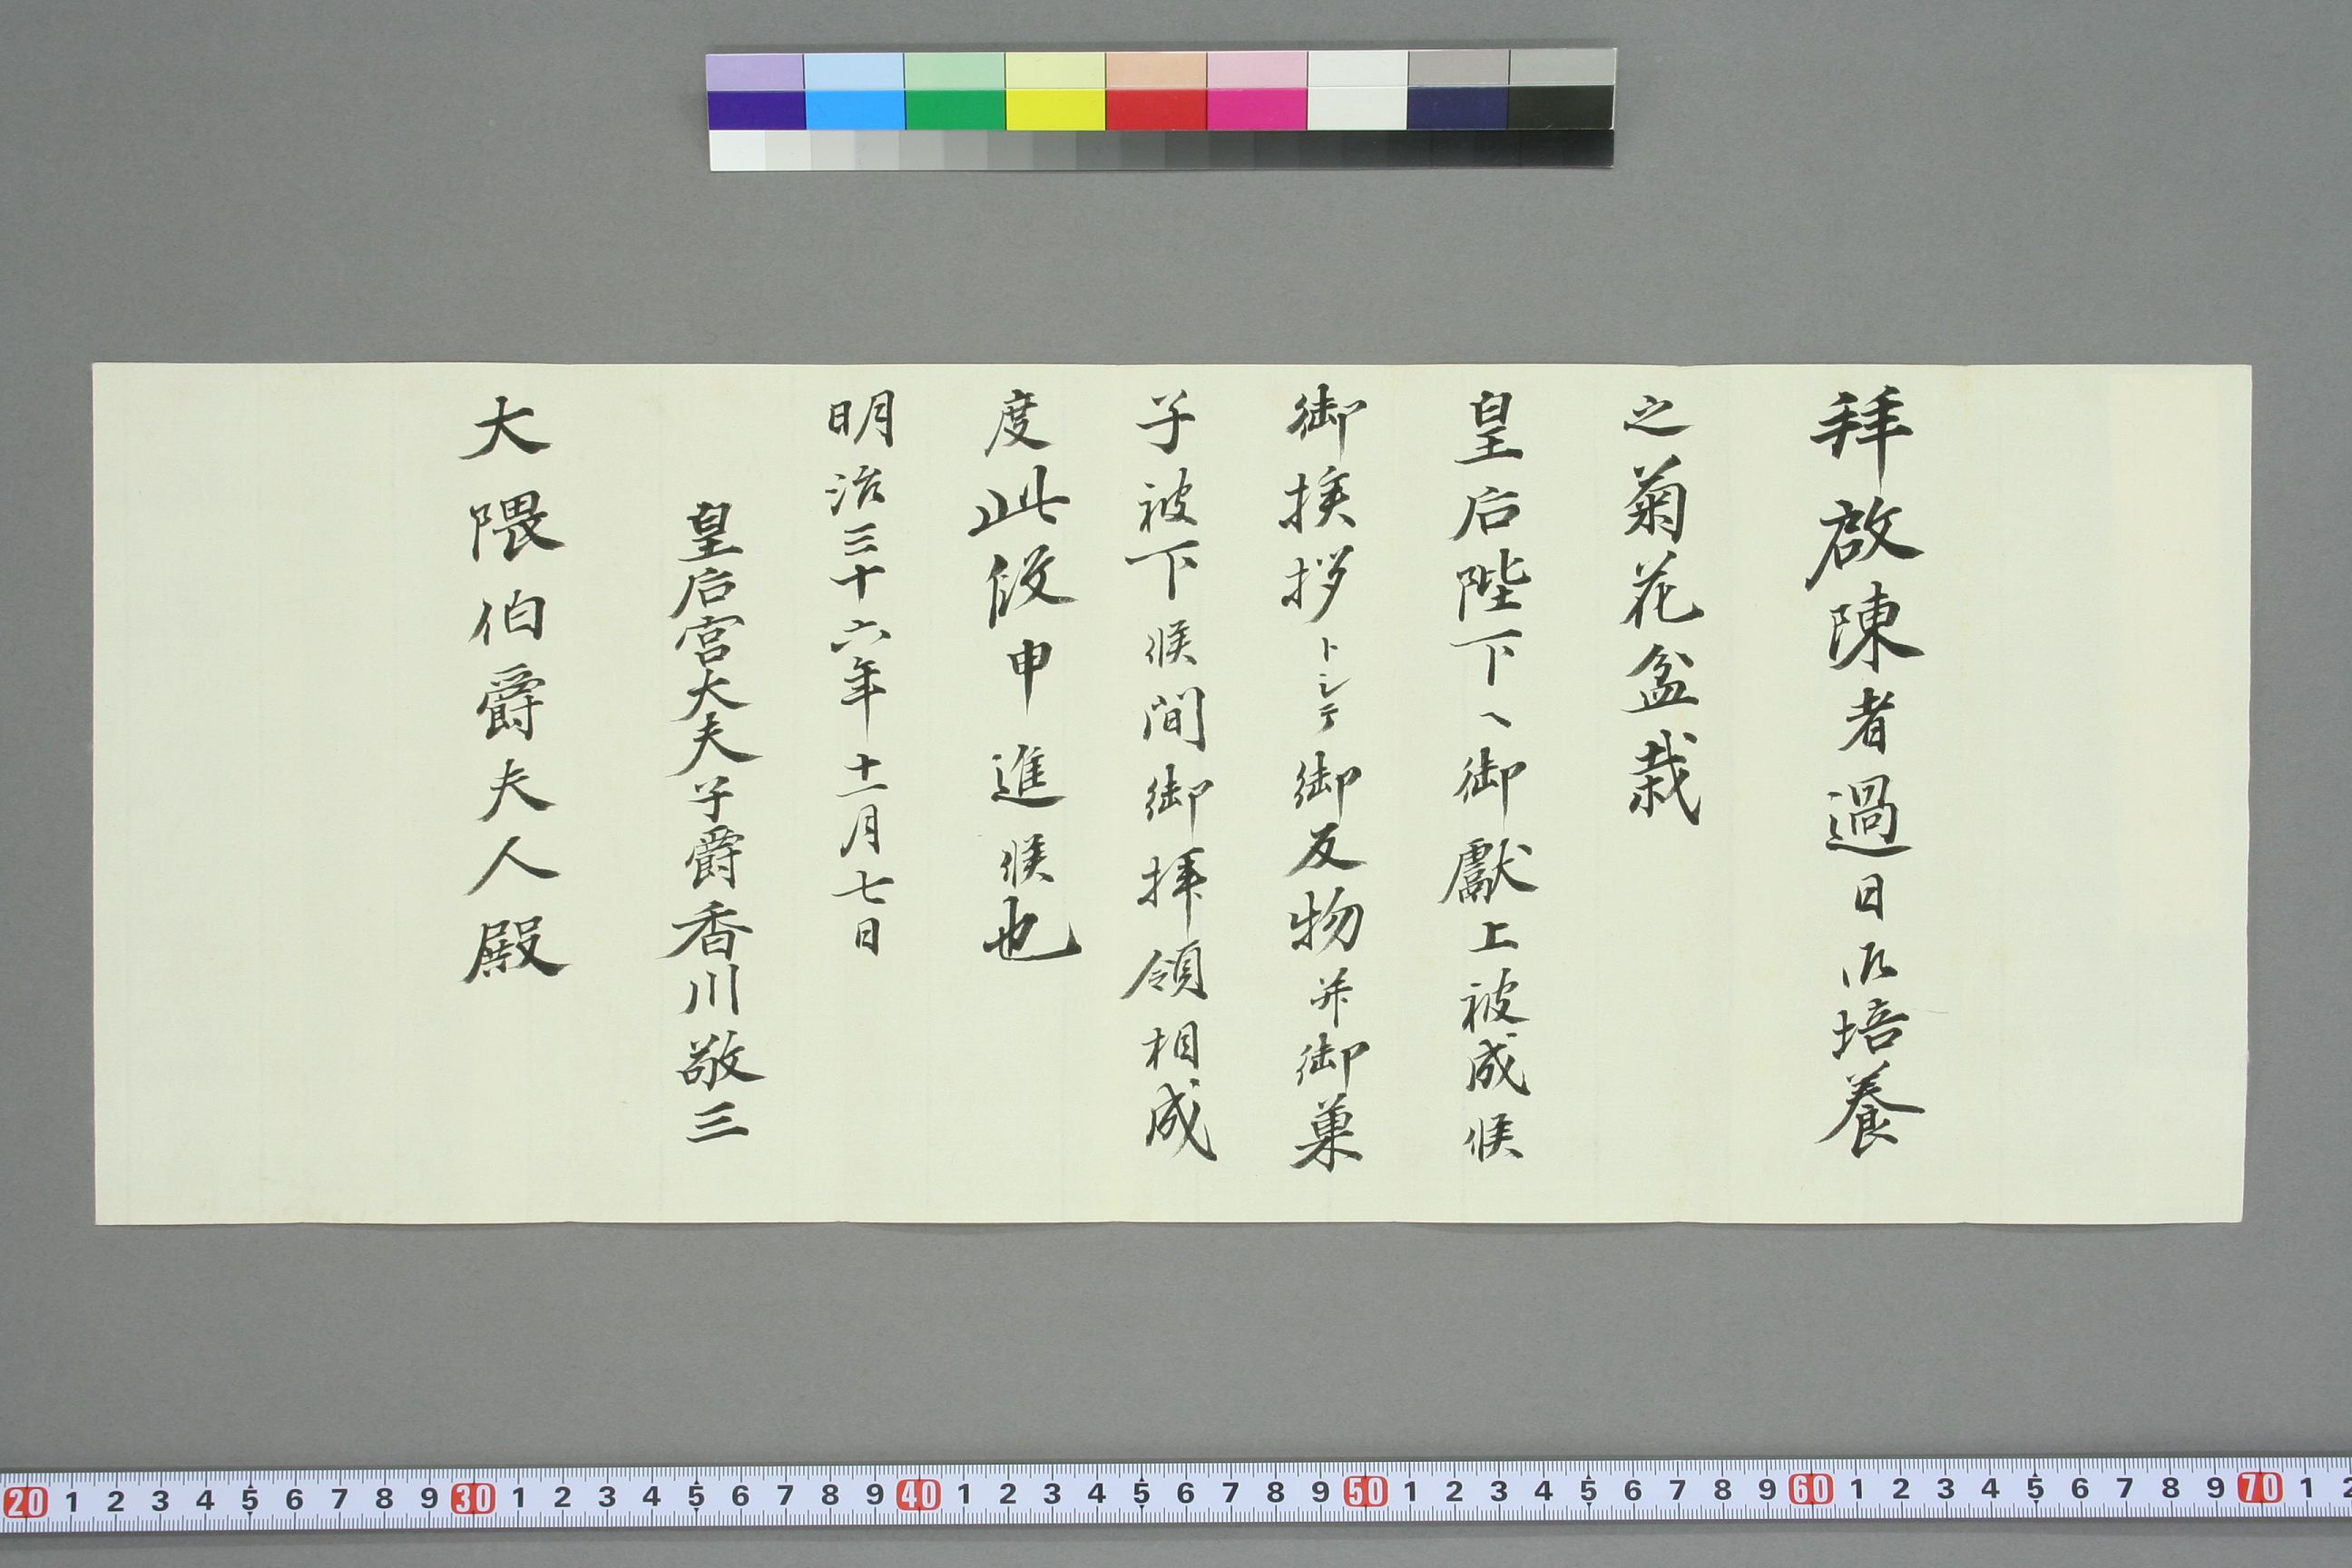 拜啓陳者過日御培養
之菊花盆栽
皇后陛下へ御獻上被成候
御挨拶トシテ御反物并御菓
子被下候間御拝領相成
度此段申進候也
明治三十六年十一月七日
皇后宮大夫子爵香川敬三
大隈伯爵夫人殿
20 1 2 3 4 5 6 7 8 9 30 1 2 3 4 5 6 7 8 9 40 1 2 3 4 5 6 7 8 9 50 1 2 3 4 5 6 7 8 9 60 1 2 3 4 5 6 7 8 9 70 1 2